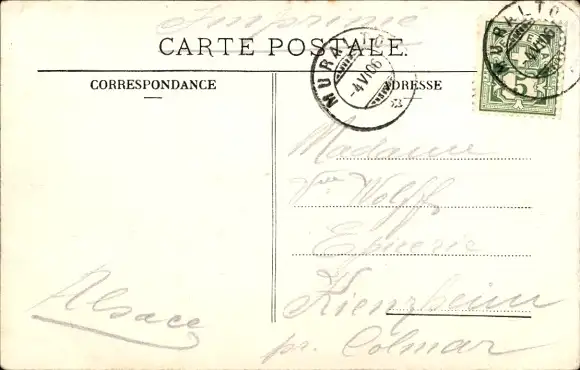 Imprimé
CARTE POSTALE.
CORRESPONDANCE
ADRESSE
MURALTO
-4.VI.06
MURALTO
VI.06
5
Madame
Vve Wolff
Epicerie
Kienzheim
pr. Colmar
Alsace